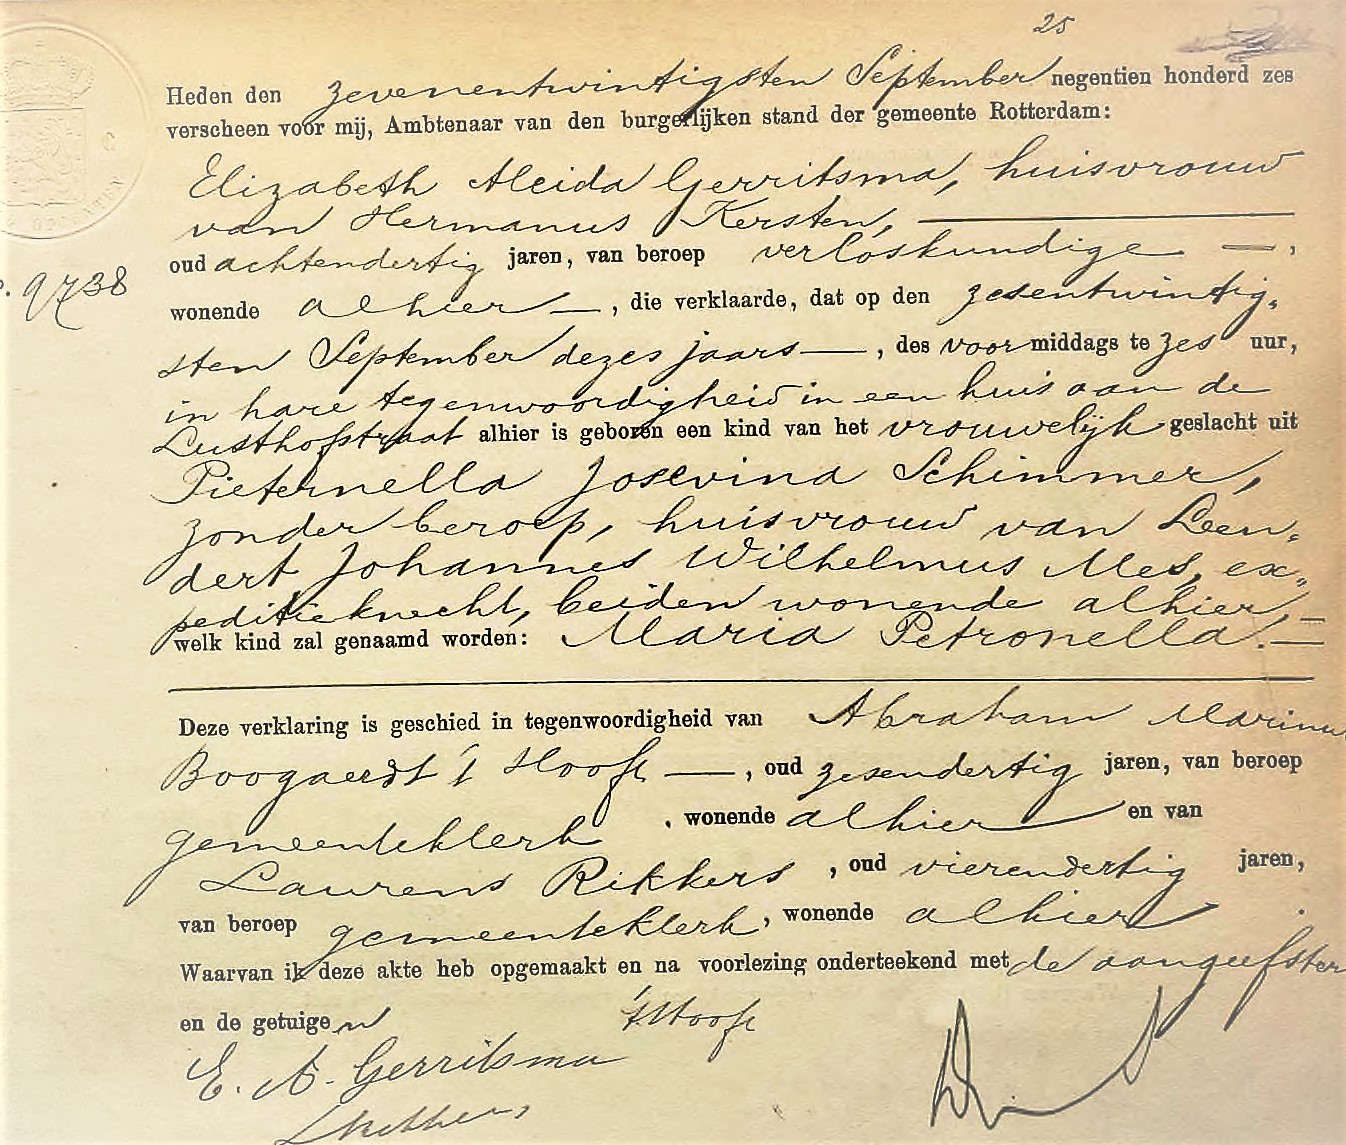 25
Heden den zevenentwintigsten September negentien honderd zes
verscheen voor mij, Ambtenaar van den burgerlijken stand der gemeente Rotterdam:
Elizabeth Aleida Gerritsma, huisvrouw
van Hermanus Kersten, —
oud achtendertig jaren, van beroep verloskundige —,
9738
wonende alhier —, die verklaarde, dat op den zesentwintig-
sten September dezes jaars —, des voormiddags te zes uur,
in hare tegenwoordigheid in een huis aan de
Lusthofstraat alhier is geboren een kind van het vrouwelijk geslacht uit
Pieternella Josevina Schimmer,
zonder beroep, huisvrouw van Leen-
dert Johannes Wilhelmus Mes, ex-
peditieknecht, beiden wonende alhier,
welk kind zal genaamd worden: Maria Petronella. —
Deze verklaring is geschied in tegenwoordigheid van Abraham Marinu
Boogaerdt 't Hooft —, oud zesendertig jaren, van beroep
gemeenteklerk, wonende alhier en van
Laurens Rikkers, oud vierendertig jaren,
van beroep gemeenteklerk, wonende alhier
Waarvan ik deze akte heb opgemaakt en na voorlezing onderteekend met de aangeefster
en de getuigen
't Hooft
E. A. Gerritsma
LRikkers